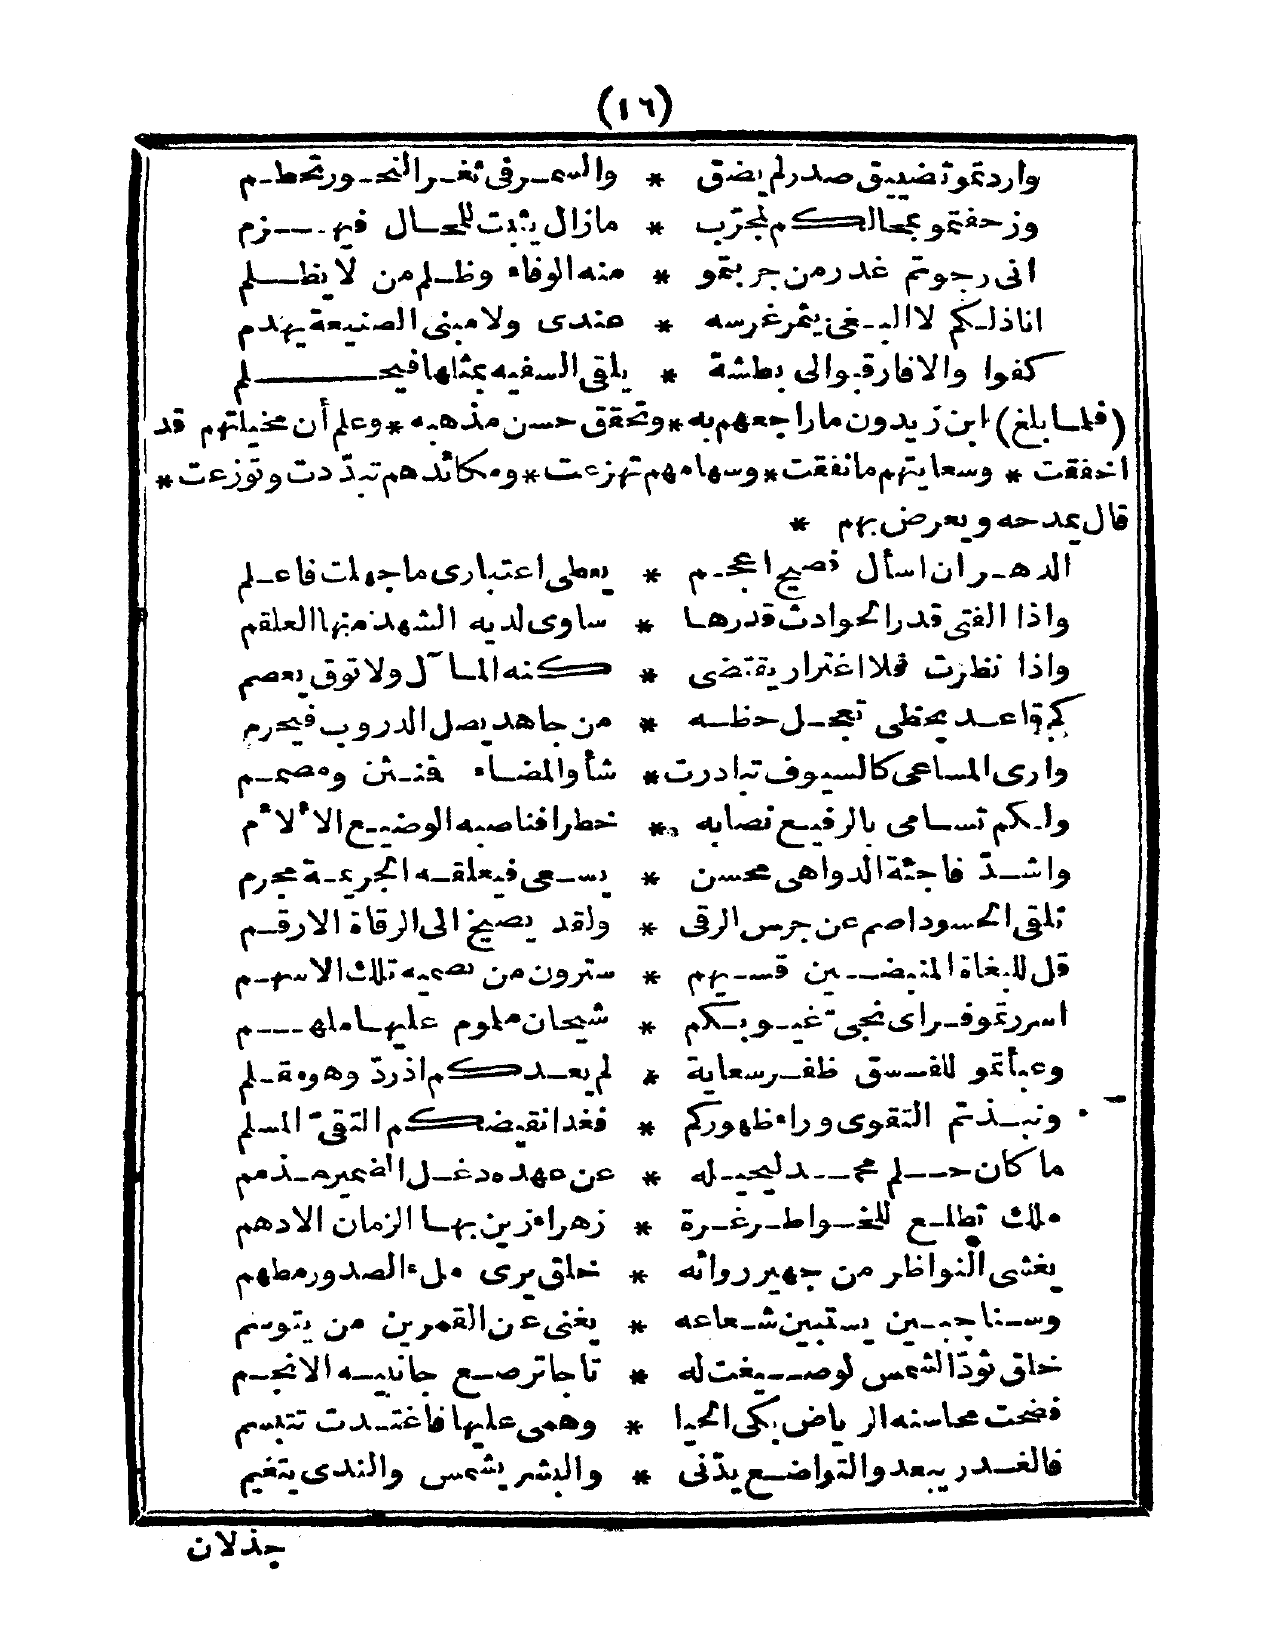 (١٦)
واردتمو تضييق صدر لم يضق * والسمر فى ثغر النحور تحطم
وزحفتمو بمحالكم لمجرّب * مازال يثبت للمحال فيهزم
انى رجوتم غدر من جربتمو * منه الوفاء وظلم من لا يظلم
اناذلكم لا البغى يثمر غرسه * عندى ولا مبنى الصنيعة يهدم
كفوا والا فارقبوا لى بطشة * يلقى السفيه بمثلها فيحلم
(فلما بلغ) ابن زيدون ماراجعهم به * وتحقق حسن مذهبه * وعلم أن مخيلتهم قد
اخفقت * وسعايتهم مانفقت * وسهامهم تهزعت * ومكائدهم تبدّدت وتوزعت *
قال يمدحه ويعرض بهم *
الدهر ان اسأل فصيح اعجم * يعطى اعتبارى ما جهلت فاعلم
واذا الفتى قدر الحوادث قدرها * ساوى لديه الشهد منها العلقم
واذا نظرت فلا اغترار يقتضى * كنه المآل ولا توق يعصم
كم قاعد يحظى تعجل حظه * من جاهد يصل الدروب فيحرم
وارى المساعى كالسيوف تبادرت * شأو المضاء فنثن ومصمم
ولكم تسامى بالرفيع نصابه * خطرا فناصبه الوضيع الألأم
واشدّ فاجئة الدواهى محسن * يسعى فيعلقه الجريمة مجرم
تلقى الحسود اصم عن جرس الرقى * ولقد يصيخ الى الرقاة الارقم
قل للبغاة المنبضين قسيهم * سترون من تصميه تلك الاسهم
اسررتمو فراى نجى غيوبكم * شيحان ملوم عليها ملهم
وعبأتمو للفسق ظفر سعاية * لم يعدكم اذ ردّ وهو مقلم
ونبذتم التقوى وراء ظهوركم * فغدا نقيضكم التقىّ المسلم
ما كان حلم محمد ليحيله * عن عهده دغل الضمير مذمم
ملك تطلع للخواطر غرة * زهراء زين بها الزمان الادهم
يغشى النواظر من جهير روائه * خلق يرى ملء الصدور مطهم
وسنا جبين يستبين شعاعه * يغنى عن القمرين من يتوسم
خلق تودّ الشمس لو صيغت له * تاجا ترصع جانبيه الانجم
فضحت محاسنه الرياض بكى الحيا * وهمى عليها فاغتدت تتبسم
فالغدر يبعد والتواضع يدّنى * والبشر يشمس والندى يتغيم
جذلان